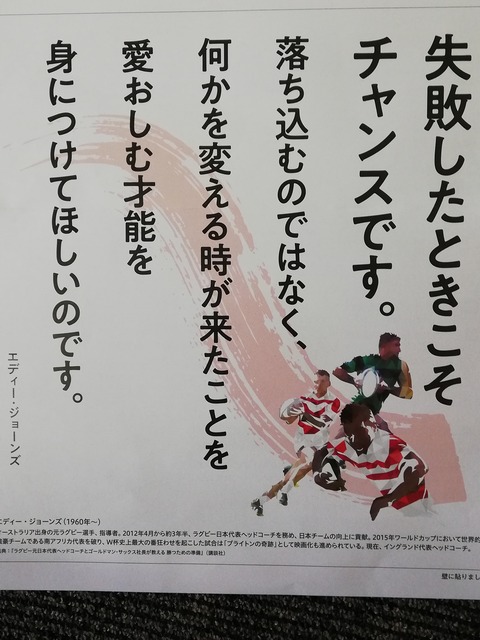 失敗したときこそ
チャンスです。
落ち込むのではなく、
何かを変える時が来たことを
愛おしむ才能を
身につけてほしいのです。
エディー・ジョーンズ
エディー・ジョーンズ（1960年〜）
オーストラリア出身の元ラグビー選手、指導者。2012年4月から約3年半、ラグビー日本代表ヘッドコーチを務め、日本チームの向上に貢献。2015年ワールドカップにおいて世界的
強豪チームである南アフリカ代表を破り、W杯史上最大の番狂わせを起こした試合は「ブライトンの奇跡」として映画化も進められている。現在、イングランド代表ヘッドコーチ。
出典：『ラグビー元日本代表ヘッドコーチとゴールドマン・サックス社長が教える 勝つための準備』（講談社）
壁に貼りまし